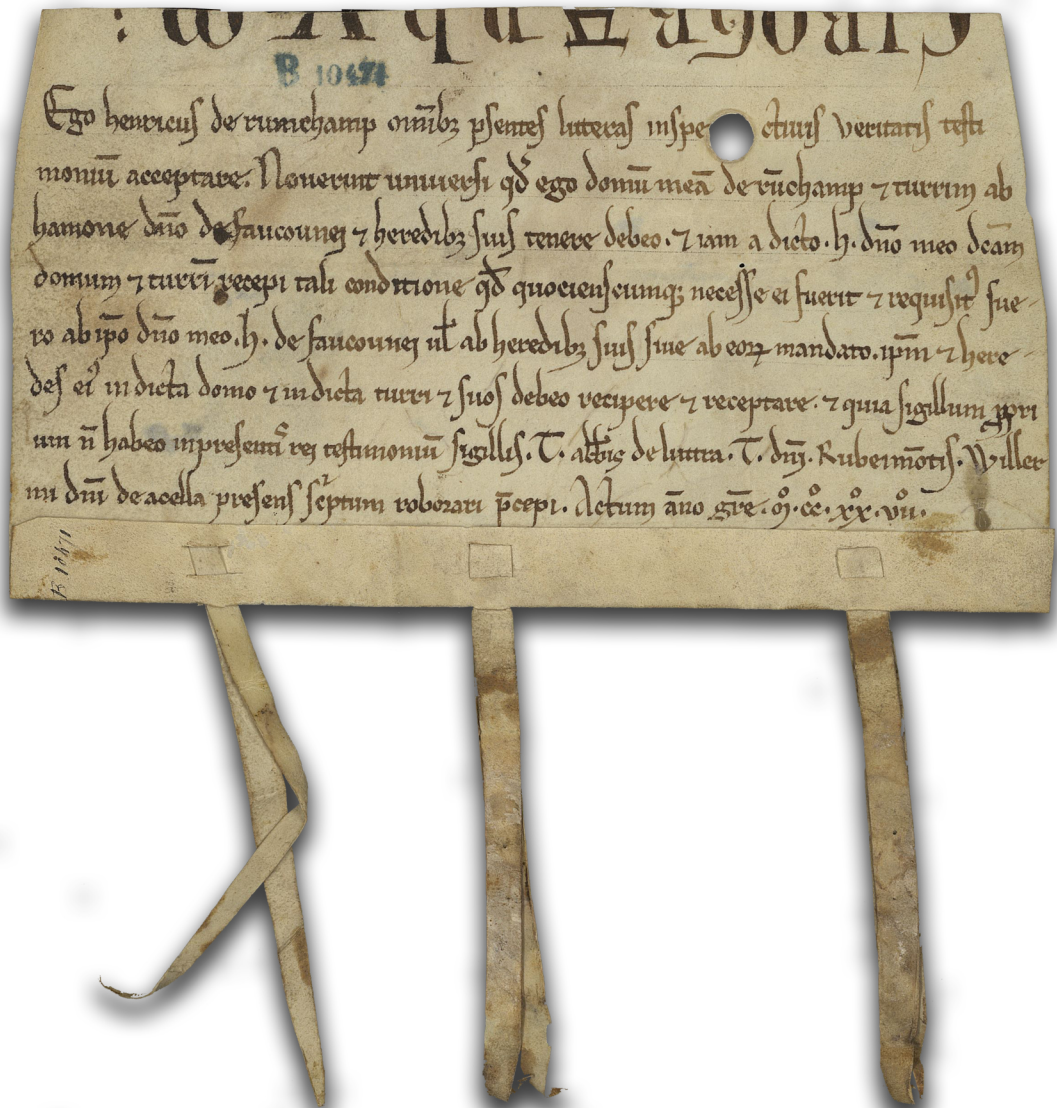 CIROGRAPHVM:
B 10471
Ego henricus de runchamp omibꝫ psentes litteras inspecturis veritatis testi
moniū acceptare. Noverint universi qd̄ ego domū meā de rūchamp ⁊ turrim ab
hamone dn̄o de faucouneɪ ⁊ heredibꝫ suis tenere debeo. ⁊ iam a dicto .h. dn̄o meo dc̄am
domum ⁊ turrī recepi tali conditione qd̄ quocienscumqꝫ necesse ei fuerit ⁊ requisitꝰ fue-
ro ab ip̄o dn̄o meo .h. de faucouneɪ ul̄ ab heredibꝫ suis siue ab eoꝝ mandato. ip̄m ⁊ here-
des eiꝰ in dicta domo ⁊ in dicta turri ⁊ suos debeo recipere ⁊ receptare. ⁊ quia sigillum ppri
um n̄ habeo in presenti rei testimoniū sigillis .T. abb̄is de luttra .T. dn̄i Rubeimōtis. Willer
mi dn̄i de acella presens sc̄ptum roborari p̄cepi. Actum āno gr̄e .mͦ.ccͦ.xxͦ.viiͦ.
B 10471